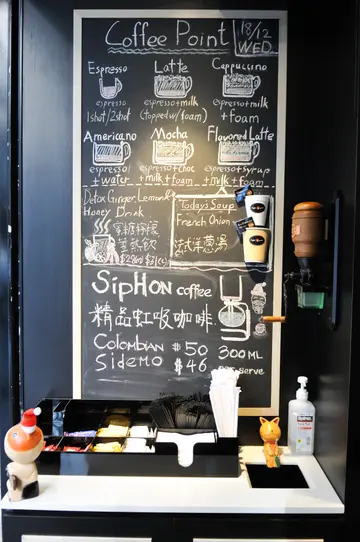 Coffee Point
18/12
WED.
Espresso
Latte
Cappuccino
espresso
espresso+milk
espresso+milk
1shot/2shot
(topped w/foam)
+ foam
Americano
Mocha
Flavored Latte
espresso/
espresso+choc
espresso+syrup
+ water
+milk+foam
+ milk + foam
Detox Ginger Lemon
Honey Drink
蜜糖檸檬
薑熱飲
Today's Soup
French Onion
法式洋蔥湯
SipHON coffee
精品虹吸咖啡
Colombian $50
300ML
Sidemo $46
serve